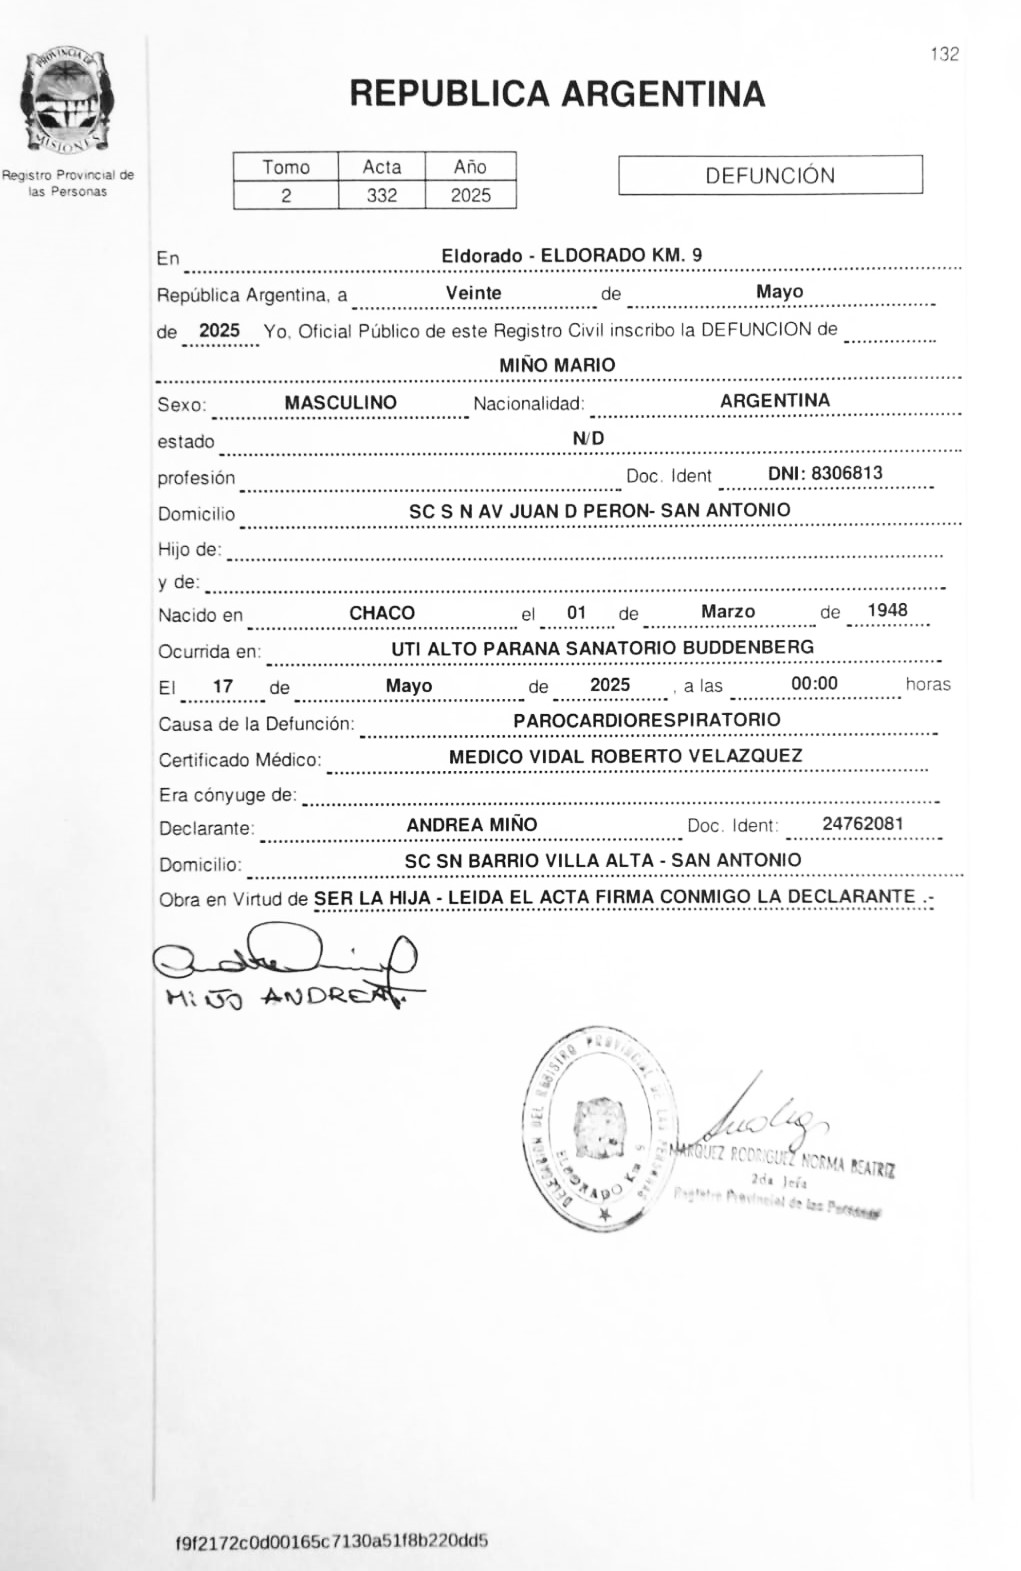 132
PROVINCIA DE
MISIONES
Registro Provincial de
las Personas
REPUBLICA ARGENTINA
Tomo Acta Año
2 332 2025
DEFUNCIÓN
En Eldorado - ELDORADO KM. 9
República Argentina, a Veinte de Mayo
de 2025 Yo, Oficial Público de este Registro Civil inscribo la DEFUNCION de
MIÑO MARIO
Sexo: MASCULINO Nacionalidad: ARGENTINA
estado N/D
profesión Doc. Ident DNI: 8306813
Domicilio SC S N AV JUAN D PERON- SAN ANTONIO
Hijo de:
y de:
Nacido en CHACO el 01 de Marzo de 1948
Ocurrida en: UTI ALTO PARANA SANATORIO BUDDENBERG
El 17 de Mayo de 2025 , a las 00:00 horas
Causa de la Defunción: PAROCARDIORESPIRATORIO
Certificado Médico: MEDICO VIDAL ROBERTO VELAZQUEZ
Era cónyuge de:
Declarante: ANDREA MIÑO Doc. Ident: 24762081
Domicilio: SC SN BARRIO VILLA ALTA - SAN ANTONIO
Obra en Virtud de SER LA HIJA - LEIDA EL ACTA FIRMA CONMIGO LA DECLARANTE .-
MIÑO ANDREA
DELEGACION DEL REGISTRO PROVINCIAL DE LAS PERSONAS
ELDORADO Km
MARQUEZ RODRIGUEZ NORMA BEATRIZ
2da Jefa
Registro Provincial de las Personas
f9f2172c0d00165c7130a51f8b220dd5